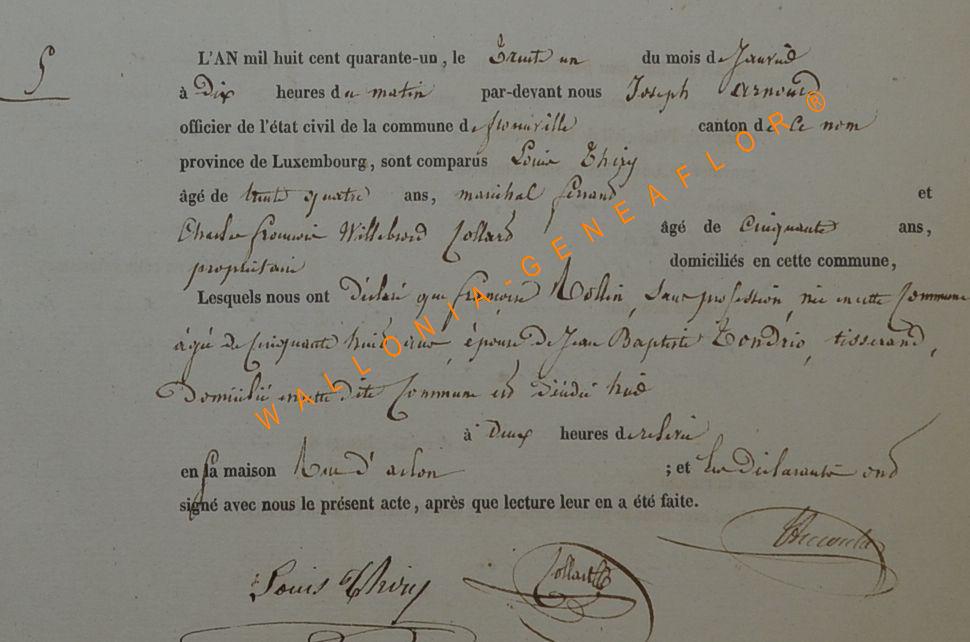 5
L'AN mil huit cent quarante-un, le Trente un du mois de Janvier
à Dix heures du matin par-devant nous Joseph Arnould
officier de l'état civil de la commune de canton de Ce nom
province de Luxembourg, sont comparus Louis Thiry
âgé de trente quatre ans, maréchal ferrand et
Charles François Willebrord Collard âgé de Cinquante ans,
propriétaire domiciliés en cette commune,
Lesquels nous ont déclaré que Françoise Rollin, sans profession, née en cette Commune
âgée de Cinquante huit ans, épouse de Jean Baptiste Tondrio, tisserand,
Domicilié en cette dite Commune est décédée
à Deux heures de relevée
en sa maison Rue d'arlon ; et les déclarants ont
signé avec nous le présent acte, après que lecture leur en a été faite.
Louis Thiry Collard
WALLONIA-GENEAFLOR ®